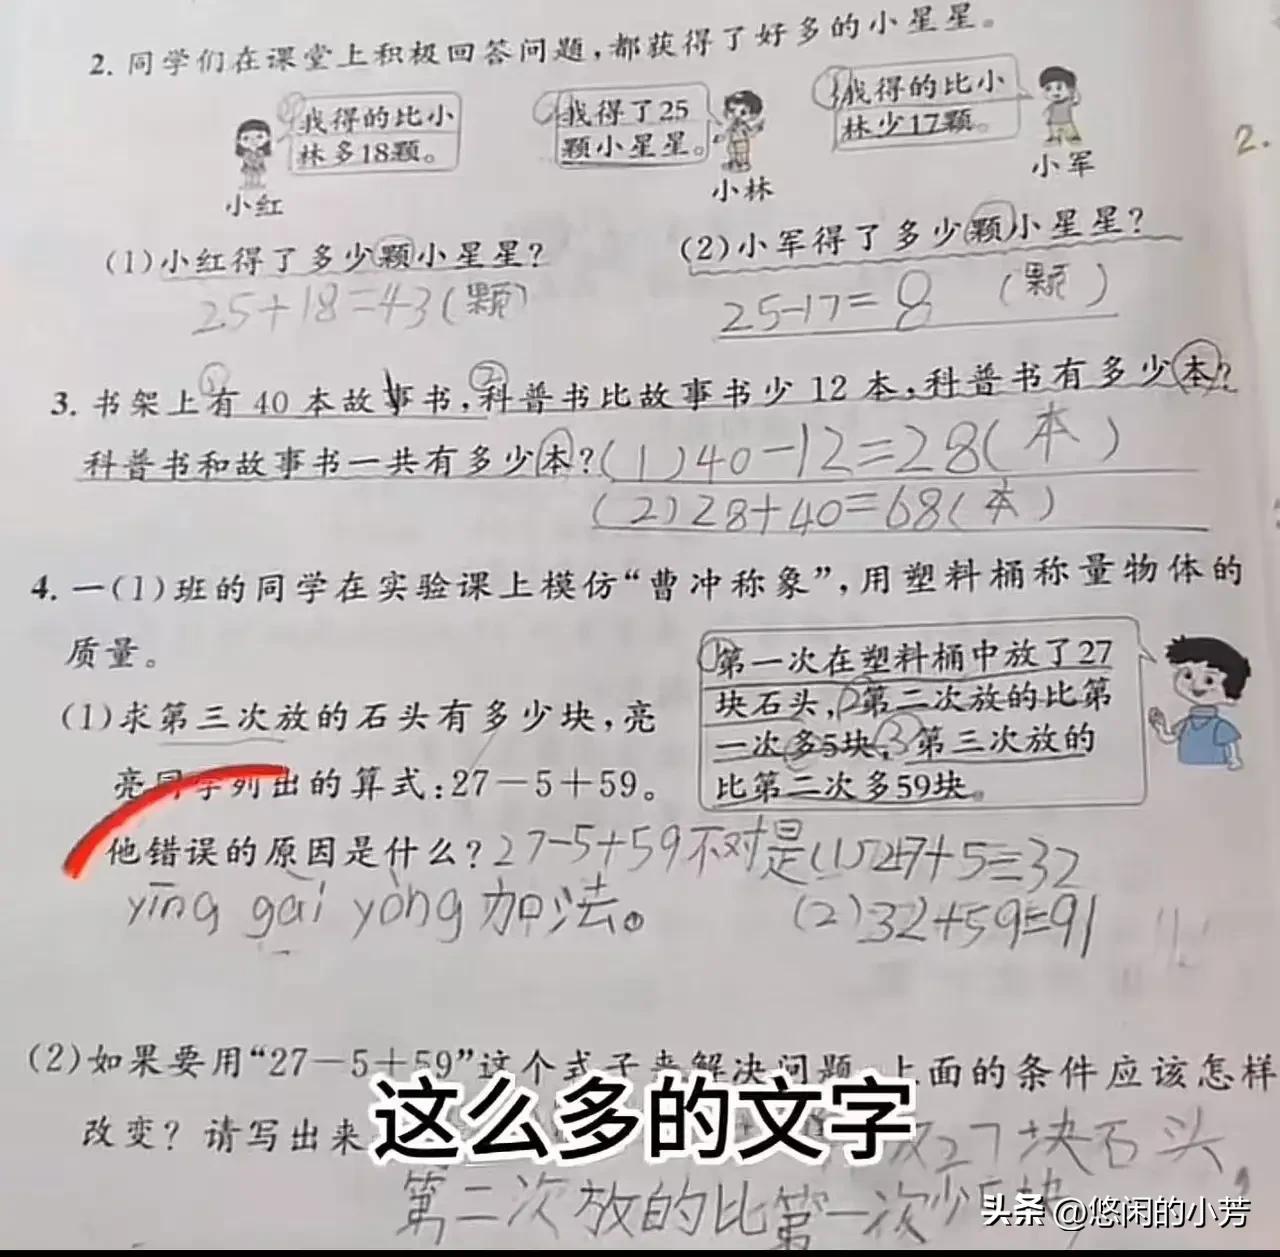 2. 同学们在课堂上积极回答问题,都获得了好多的小星星。
② 我得的比小
林多18颗。
小红
① 我得了25
颗小星星。
小林
③ 我得的比小
林少17颗。
小军
(1)小红得了多少颗小星星?
25+18=43(颗)
(2)小军得了多少颗小星星?
25-17=8 (颗)
3. 书架上有 40 本故事书,科普书比故事书少 12 本,科普书有多少本?
科普书和故事书一共有多少本?(1)40-12=28(本)
(2)28+40=68(本)
4. 一(1)班的同学在实验课上模仿“曹冲称象”,用塑料桶称量物体的
质量。
①第一次在塑料桶中放了27
块石头,②第二次放的比第
一次多5块,③第三次放的
比第二次多59块。
(1)求第三次放的石头有多少块,亮
亮同学列出的算式:27-5+59。
他错误的原因是什么?27-5+59不对是(1)27+5=32
yīng gāi yòng 加法。
(2)32+59=91
(2)如果要用“27-5+59”这个式子来解决问题,上面的条件应该怎样
改变? 请写出来
这么多的文字
27块石头,
第二次放的比第一次少5块
头条 @悠闲的小芳
2.